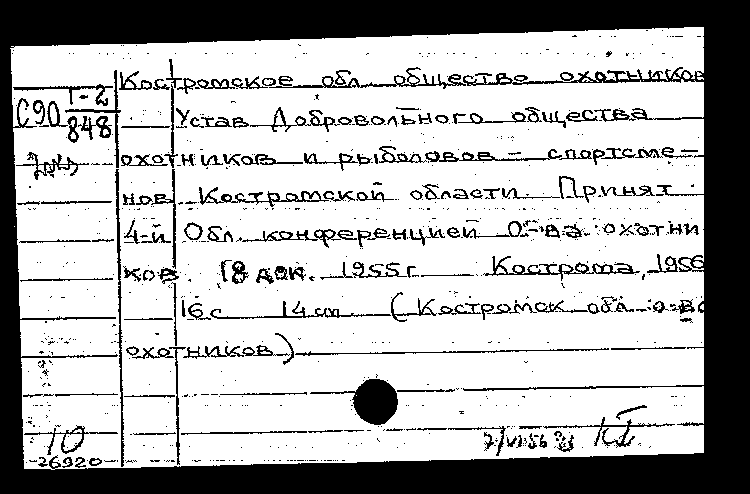 Костромское обл. общество охотников
С90 1-2
848
Устав Добровольного общества
охотников и рыболовов - спортсме-
нов Костромской области. Принят
4-й Обл. конференцией О-ва охотни
ков. 18 дек. 1955 г. Кострома, 1956
16 с 14 см (Костромск. обл. о-во
охотников)
10
26920